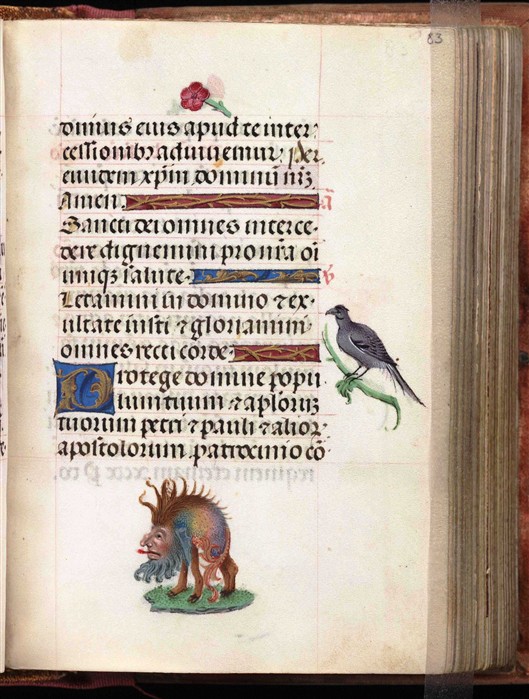 83
omnis eius apud te inter
cessionib3 adiuuemur. per
eundem xpm dominum nr̄3
Amen.
Sancti dei omnes interce-
dere dignemini pro nr̄a oī
umq3 salute.
Letamini in domino ⁊ ex-
ultate iusti ⁊ gloriamini
omnes recti corde.
Protege domine popu
lum tuum ⁊ aplor̄
tuorum petri ⁊ pauli ⁊ alior̄
apostolorum patrocinio cō